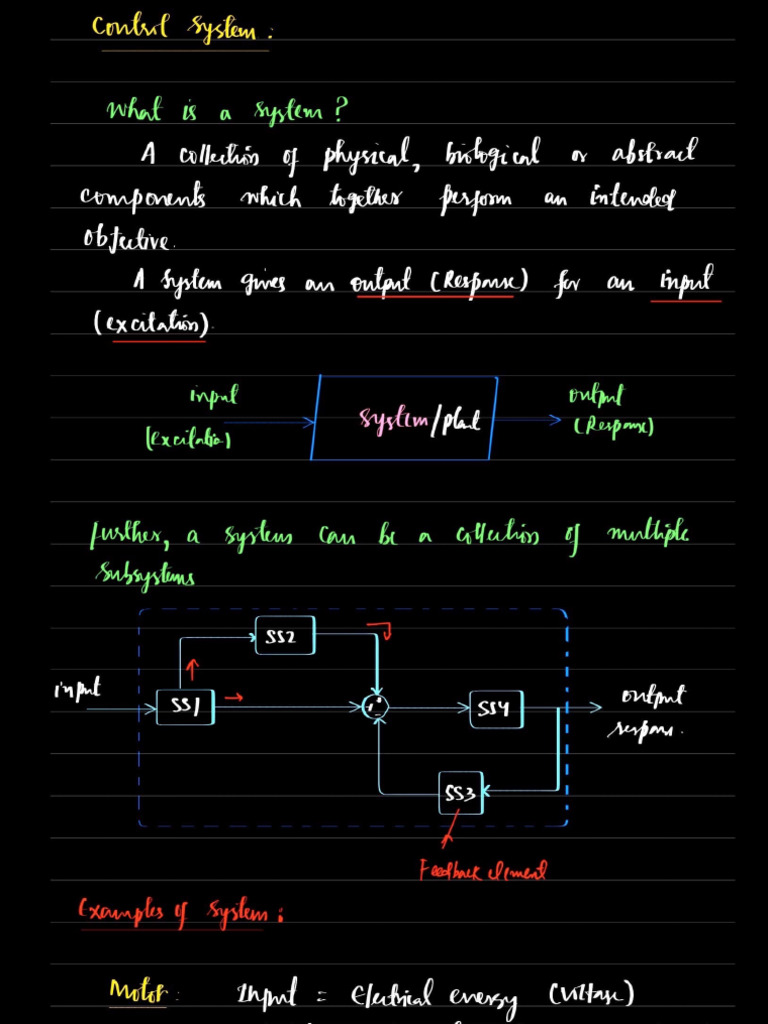 Control System :
What is a system?
A collection of physical, biological or abstract
components which together perform an intended
objective.
A system gives an output (Response) for an input
(excitation).
input
(Excitation)
System/plant
output
(Response)
further, a system can be a collection of multiple
subsystems
SS2
input
SS1
SS4
output
respons.
SS3
Feedback element
Examples of System :
Motor : Input = Electrical energy (Voltage)